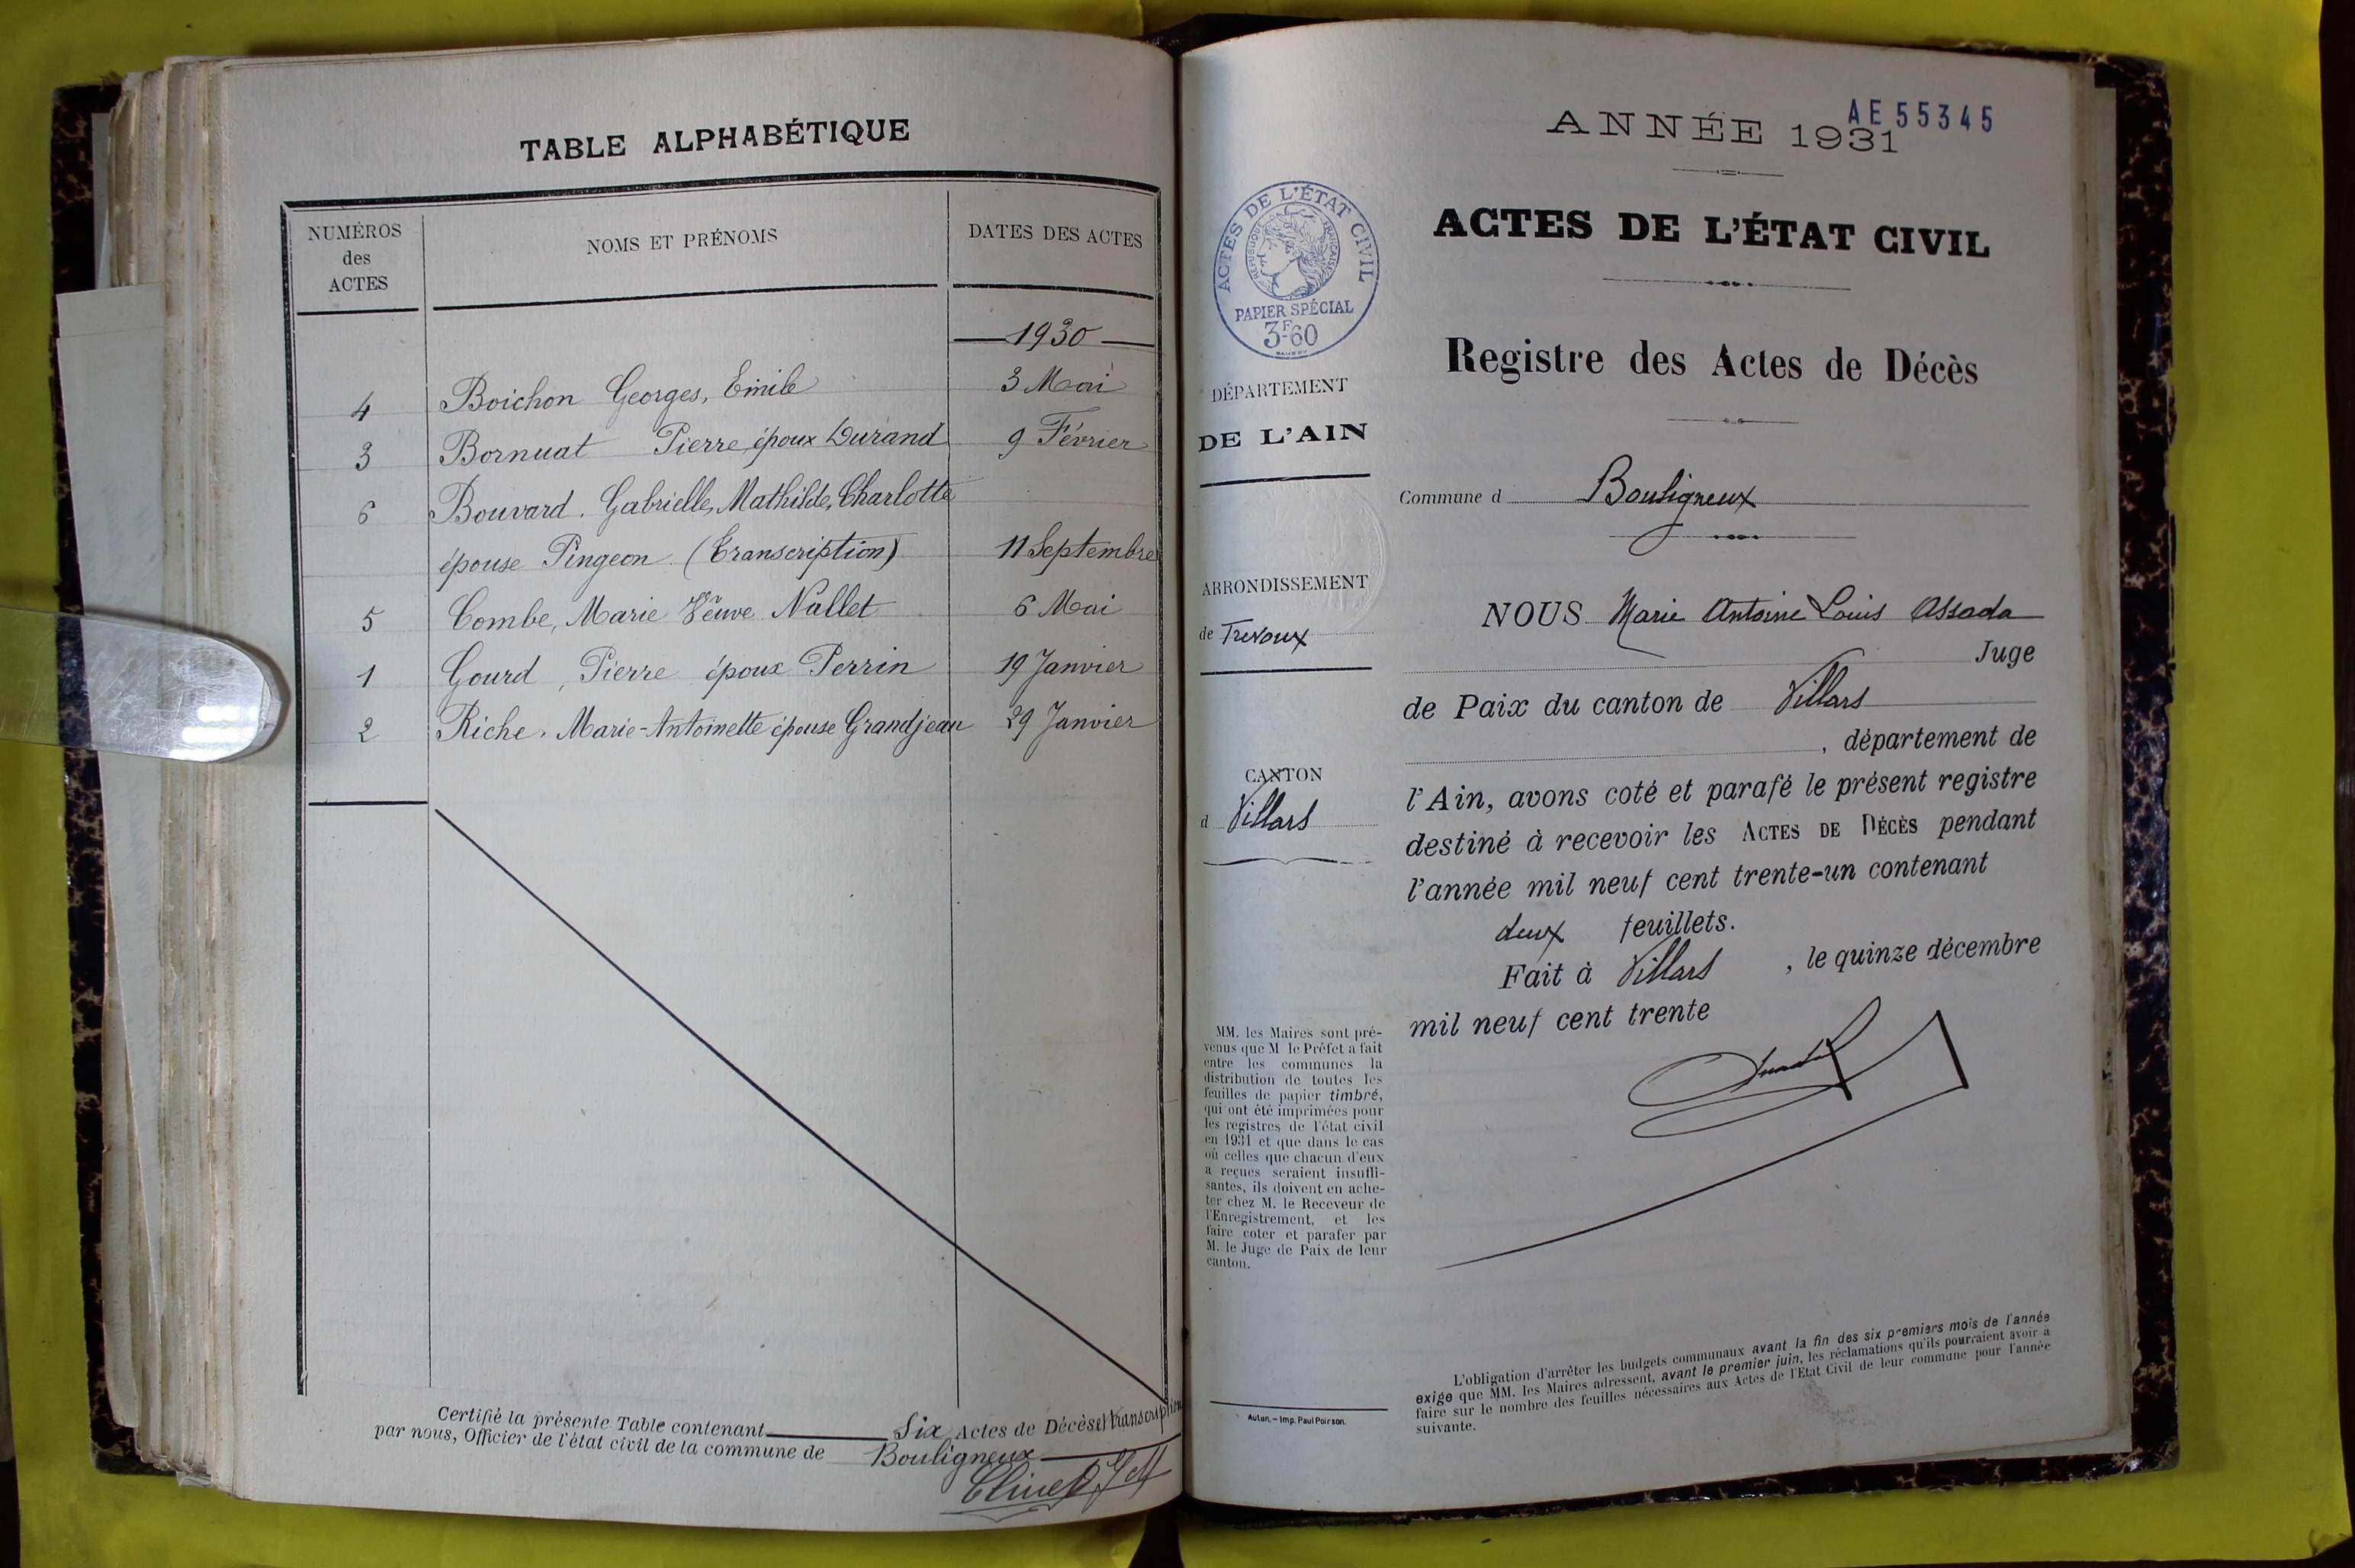 TABLE ALPHABÉTIQUE
NUMÉROS
des
ACTES
NOMS ET PRÉNOMS
DATES DES ACTES
1930
4 Boichon Georges, Emile 3 Mai
3 Bornuat Pierre époux Durand 9 Février
6 Bouvard. Gabrielle, Mathilde, Charlotte
épouse Pingeon (Transcription) 11 Septembre
5 Combe, Marie Veuve Nallet 6 Mai
1 Gourd, Pierre époux Perrin 19 Janvier
2 Riche. Marie-Antoinette épouse Grandjean 29 Janvier
Certifié la présente Table contenant Six Actes de Décès et transcription
par nous, Officier de l'état civil de la commune de Bouligneux
AE55345
ANNÉE 1931
ACTES DE L'ÉTAT CIVIL
RÉPUBLIQUE FRANÇAISE
PAPIER SPÉCIAL
3F60
DÉPARTEMENT
DE L'AIN
ARRONDISSEMENT
de Trevoux
CANTON
d Villars
MM. les Maires sont pré-
venus que M le Préfet a fait
entre les communes la
distribution de toutes les
feuilles de papier timbré,
qui ont été imprimées pour
les registres de l'état civil
en 1931 et que dans le cas
où celles que chacun d'eux
a reçues seraient insuffi-
santes, ils doivent en ache-
ter chez M. le Receveur de
l'Enregistrement, et les
faire coter et parafer par
M. le Juge de Paix de leur
canton.
Autun. – Imp. Paul Poirson.
ACTES DE L'ÉTAT CIVIL
Registre des Actes de Décès
Commune d Bouligneux
NOUS Marie Antoine Louis Assada
Juge
de Paix du canton de Villars
, département de
l'Ain, avons coté et parafé le présent registre
destiné à recevoir les ACTES DE DÉCÈS pendant
l'année mil neuf cent trente-un contenant
deux feuillets.
Fait à Villars , le quinze décembre
mil neuf cent trente
L'obligation d'arrêter les budgets communaux avant la fin des six premiers mois de l'année
exige que MM. les Maires adressent, avant le premier juin, les réclamations qu'ils pourraient avoir à
faire sur le nombre des feuilles nécessaires aux Actes de l'Etat Civil de leur commune pour l'année
suivante.